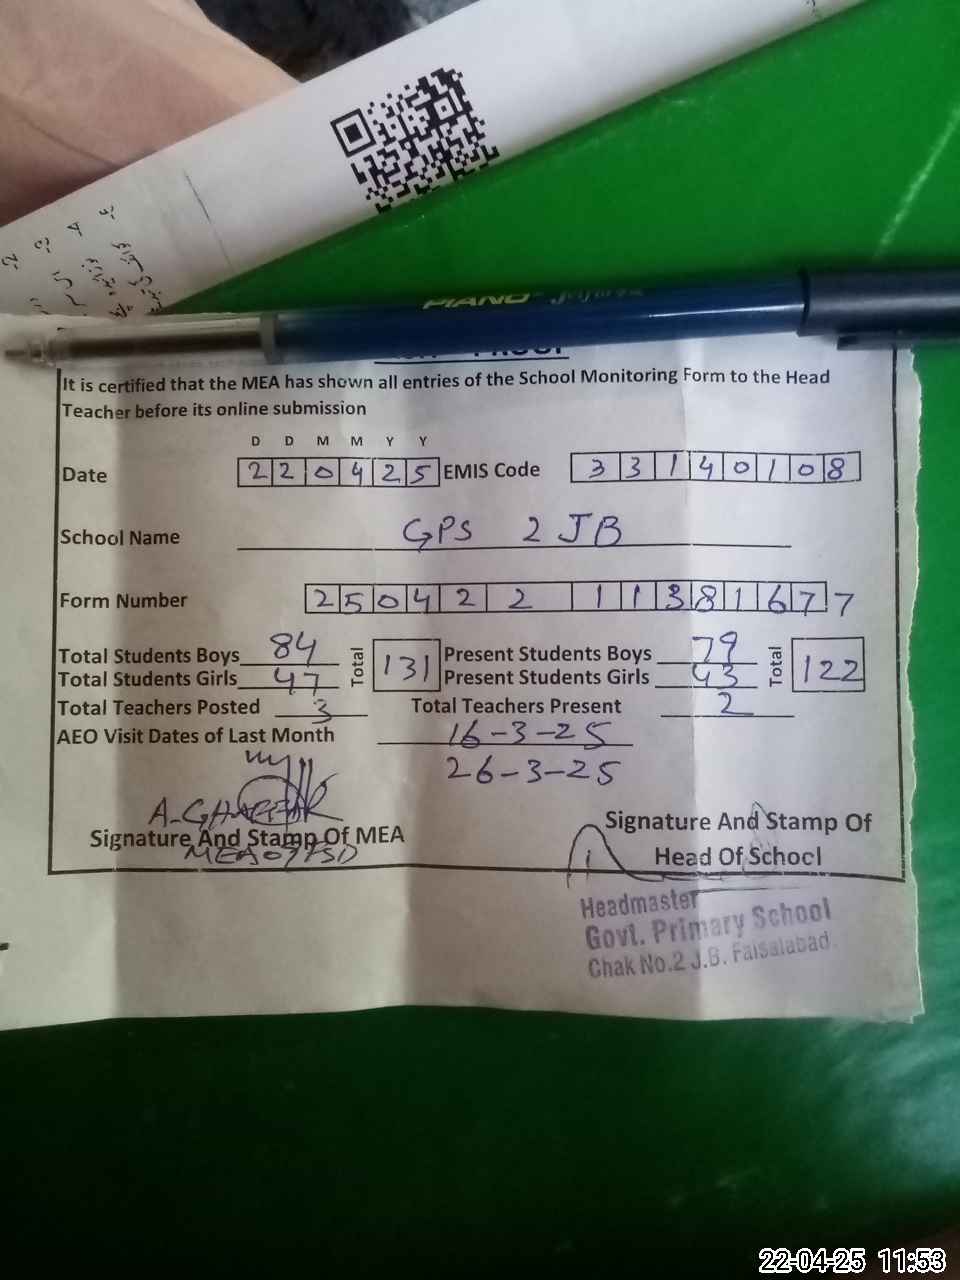 PIANO
It is certified that the MEA has shown all entries of the School Monitoring Form to the Head
Teacher before its online submission
D D M M Y Y
Date 2 2 0 4 2 5 EMIS Code 3 3 1 4 0 1 0 8
School Name GPS 2 JB
Form Number 2 5 0 4 2 2 1 1 3 8 1 6 7 7
Total Students Boys 84 Total 131 Present Students Boys 79 Total 122
Total Students Girls 47 Present Students Girls 43
Total Teachers Posted 3 Total Teachers Present 2
AEO Visit Dates of Last Month 16-3-25
26-3-25
A-GHAFFAR
Signature And Stamp Of MEA
MEA 07 FSD
Signature And Stamp Of
Head Of School
Headmaster
Govt. Primary School
Chak No.2 J.B. Faisalabad.
22-04-25 11:53